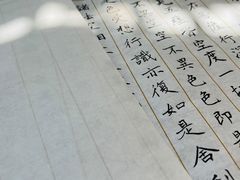 行深
空度一
空不異色色即是
想行識亦復如是舍利